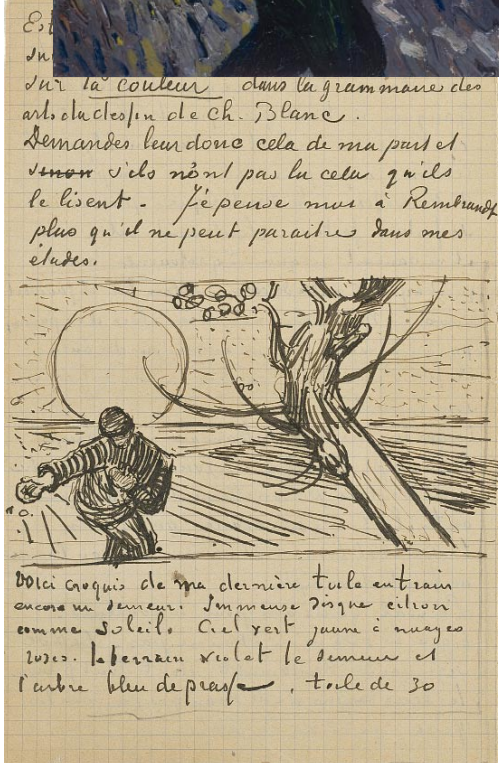 Est
sur la couleur dans la grammaire des
arts du dessin de Ch. Blanc.
Demandes leur donc cela de ma part et
sinon s'ils n'ont pas lu cela qu'ils
le lisent. Je pense moi à Rembrandt
plus qu'il ne peut paraitre dans mes
études.
Voici croquis de ma dernière toile en train
encore un semeur. Immense disque citron
comme soleil. Ciel vert jaune à nuages
roses. le terrain violet le semeur et
l'arbre bleu de prusse. toile de 30